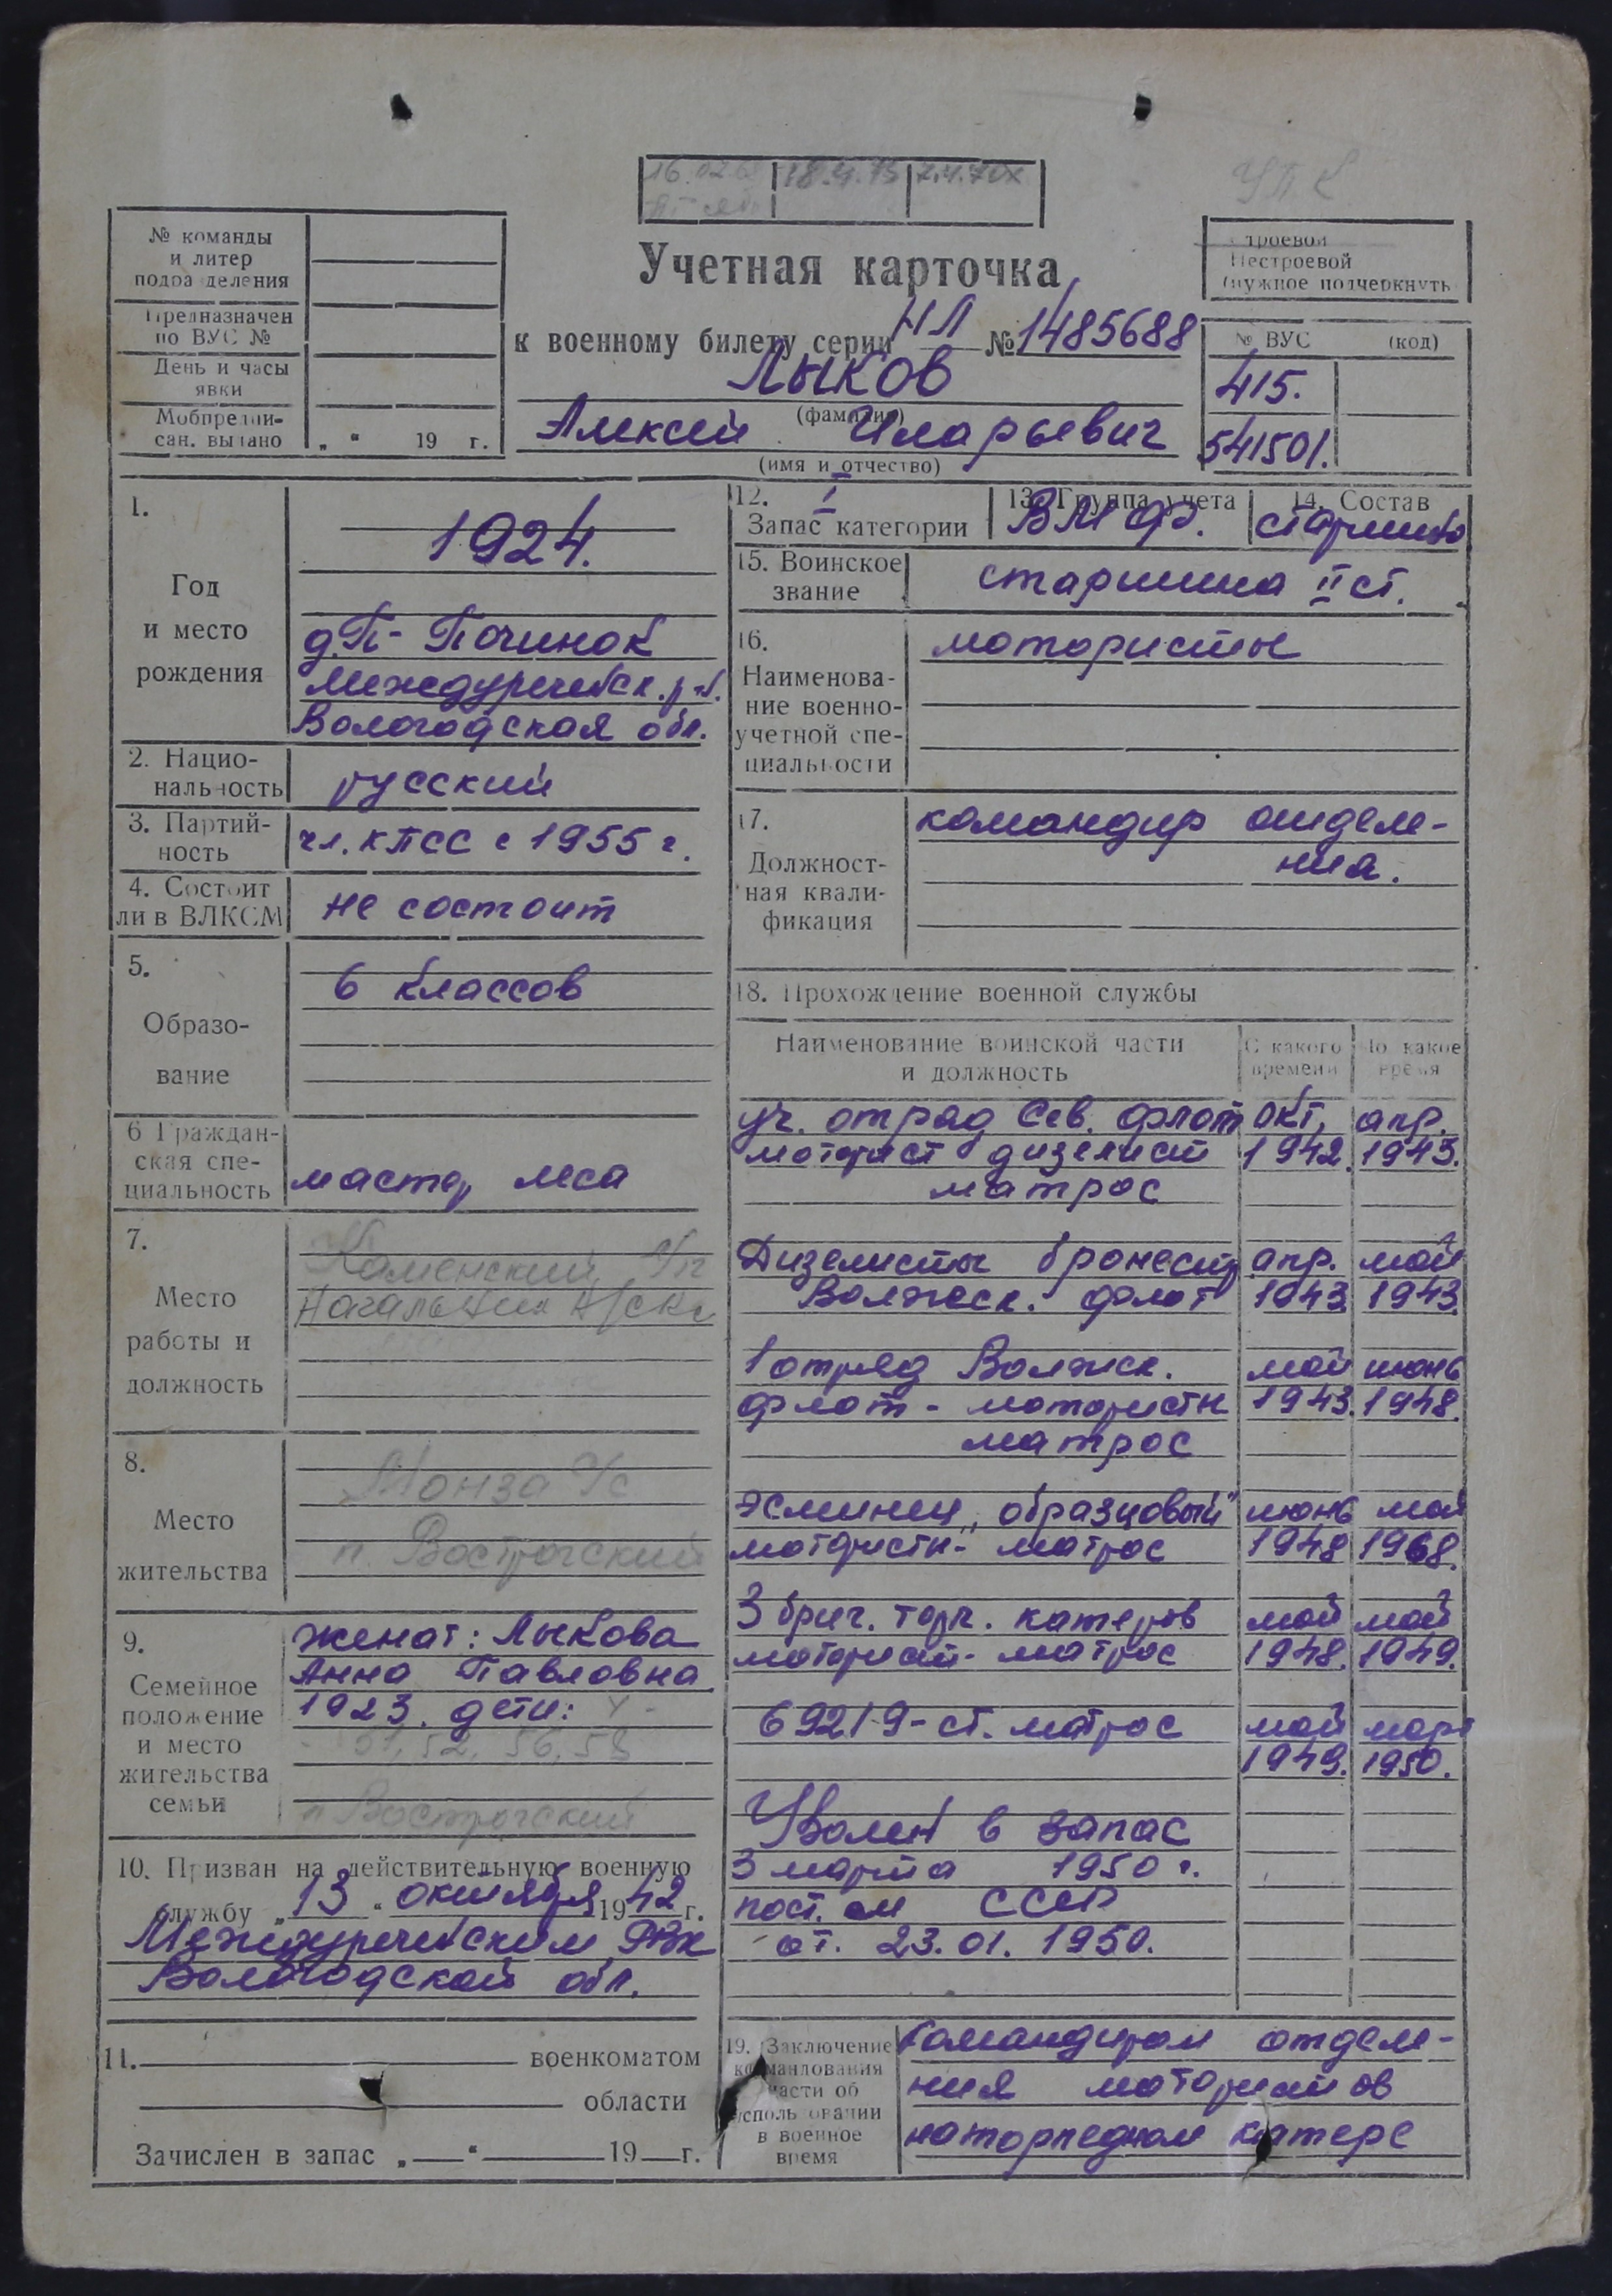 УПК
№ команды
и литер
подра деления
Предназначен
по ВУС №
День и часы
явки
Мобпредпи-
сан. выдано „ “ 19 г.
Учетная карточка
к военному билету серии НЛ № 1485688
Лыков
(фамилия)
Алексей Иларьевич
(имя и отчество)
Строевой
Нестроевой
(нужное подчеркнуть
№ ВУС (код)
415.
541501.
1.
Год
и место
рождения
1924.
д. П- Починок
Междуреченск. р-н.
Вологодская обл.
2. Нацио-
нальность
русский
3. Партий-
ность
чл. КПСС с 1955 г.
4. Состоит
ли в ВЛКСМ
не состоит
5.
Образо-
вание
6 классов
6 Граждан-
ская спе-
циальность
мастер леса
7.
Место
работы и
должность
Каменский
Начальник
8.
Место
жительства
Монза
п. Вострогский
9.
Семейное
положение
и место
жительства
семьи
женат: Лыкова
Анна Павловна
1923. дети: 4-
51, 52, 56, 58
п Вострогский
10. Призван на действительную военную
службу „13“ октября 1942 г.
Междуреченским РВК
Вологодской обл.
11. военкоматом
области
Зачислен в запас „ “ 19 г.
12. I
Запас категории
13. Группа учета
ВМФ.
14. Состав
старшина
15. Воинское
звание
старшина II ст.
16.
Наименова-
ние военно-
учетной спе-
циальности
мотористы
17.
Должност-
ная квали-
фикация
командир отделе-
ния.
18. Прохождение военной службы
Наименование воинской части
и должность
С какого
времени
По какое
время
уч. отряд Сев. флот окт. апр.
моторист дизелист 1942. 1943.
матрос
Дизелисты апр. май
Волжск. флот 1943. 1943.
1 отряд Волжск. май июнь
флот - мотористы 1943. 1948.
матрос
Эсминец „образцовый“ июнь май
мотористы- матрос 1948 1968.
3 бриг. торп. катеров май май
моторист- матрос 1948. 1949.
69219- ст. матрос май март
1949. 1950.
Уволен в запас
3 марта 1950 г.
пост. см СССР
от. 23.01. 1950.
19. Заключение
командования
части об
использовании
в военное
время
командиром отделе-
ния мотористов
на торпедном катере